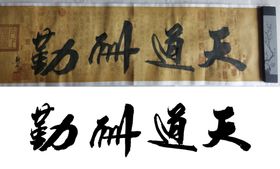 天道酬勤
天道酬勤